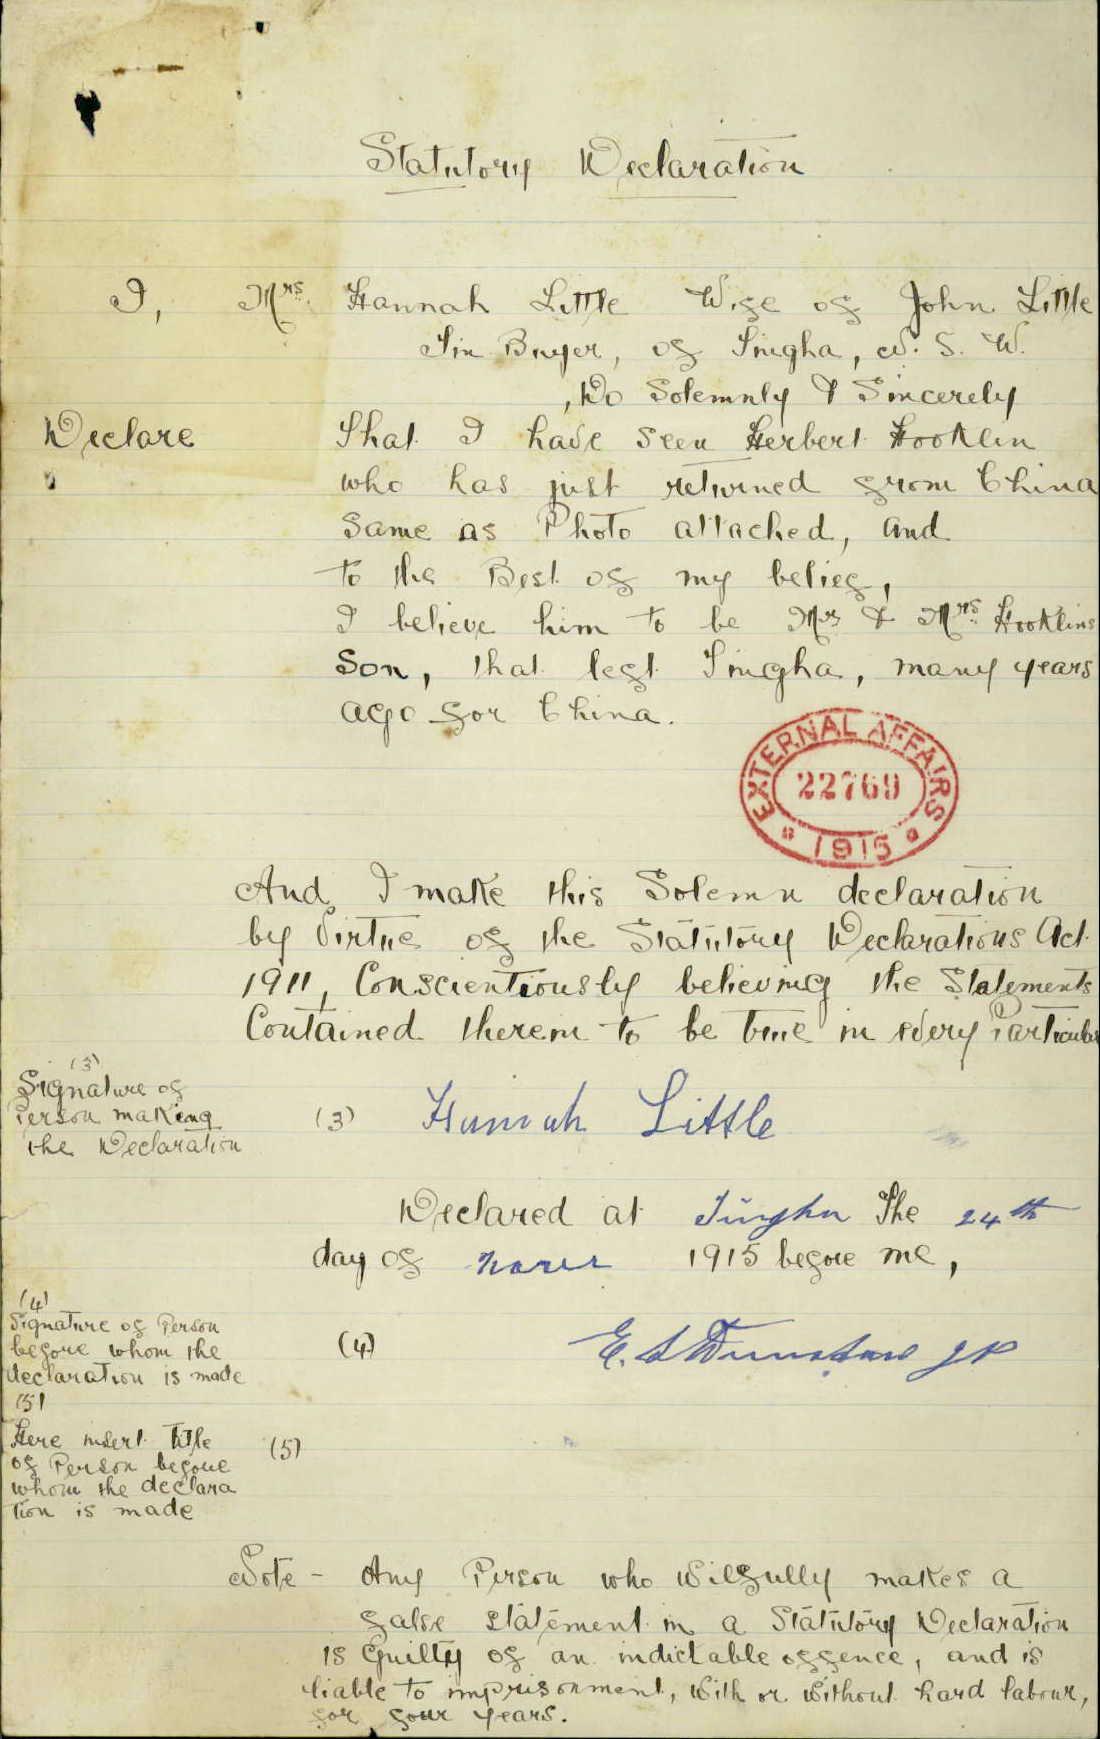 Statutory Declaration
I, Mrs. Hannah Little Wife of John Little
Tin Buyer, of Tingha, N. S. W.
, Do Solemnly & Sincerely
Declare That I have seen Herbert Hooklin
who has just returned from China
same as Photo attached, and
to the Best of my belief,
I believe him to be Mr & Mrs. Hooklins
Son, that left Tingha, many years
ago for China.
EXTERNAL AFFAIRS
22769
1915
And I make this Solemn declaration
by Virtue of the Statutory Declarations Act
1911, Conscientiously believing the Statements
Contained therein to be true in every Particular
(3)
Signature of
Person making
the Declaration
(3) Hannah Little
Declared at Tingha The 24th
day of 1915 before me,
(4)
Signature of Person
before whom the
declaration is made
(4) E. JP
(5)
Here insert Title
of Person before
whom the declara
tion is made
(5)
Note - Any Person who Wilfully makes a
false statement in a Statutory Declaration
is Guilty of an indictable offence, and is
liable to imprisonment, With or Without hard labour,
for four years.